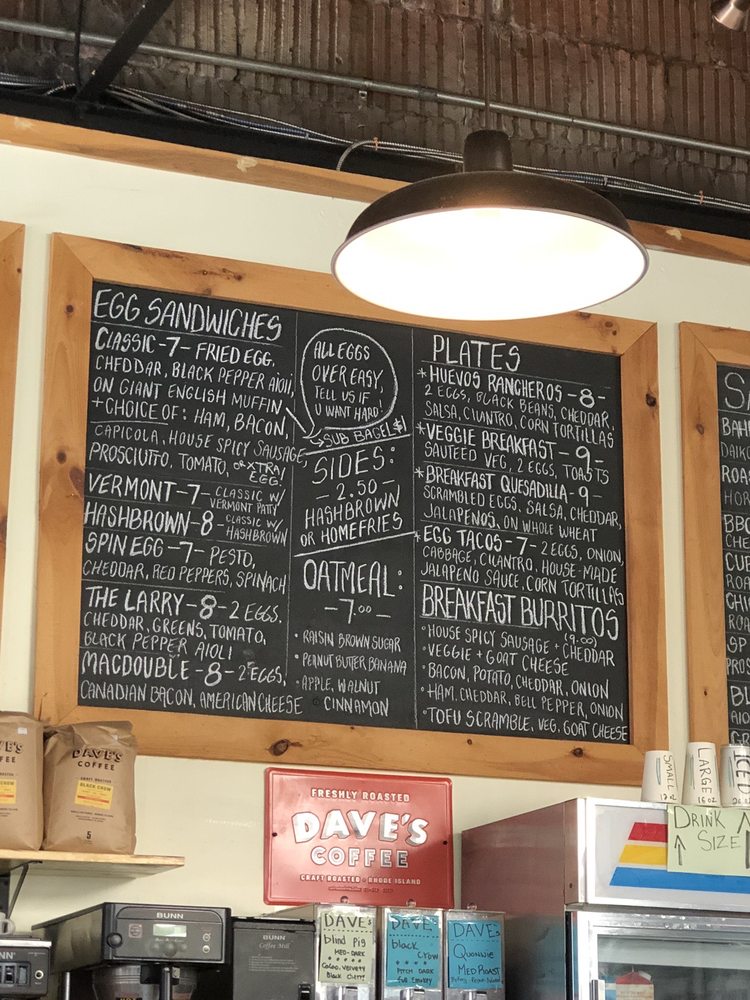 EGG SANDWICHES
CLASSIC-7-FRIED EGG,
CHEDDAR, BLACK PEPPER AIOLI,
ON GIANT ENGLISH MUFFIN
+CHOICE OF: HAM, BACON,
CAPICOLA, HOUSE SPICY SAUSAGE,
PROSCIUTTO, TOMATO, OR XTRA
EGG!
VERMONT-7-CLASSIC W/
VERMONT PATTY
HASHBROWN-8-CLASSIC W/
HASHBROWN
SPIN EGG-7-PESTO,
CHEDDAR, RED PEPPERS, SPINACH
THE LARRY-8-2 EGGS,
CHEDDAR, GREENS, TOMATO,
BLACK PEPPER AIOLI
MACDOUBLE-8-2 EGGS,
CANADIAN BACON, AMERICAN CHEESE
ALL EGGS
OVER EASY,
TELL US IF
U WANT HARD!
SUB BAGEL $1
SIDES:
-2.50-
HASHBROWN
OR HOMEFRIES
OATMEAL:
-7.00-
•RAISIN BROWN SUGAR
•PEANUT BUTTER BANANA
•APPLE, WALNUT
CINNAMON
PLATES
*HUEVOS RANCHEROS-8-
2 EGGS, BLACK BEANS, CHEDDAR,
SALSA, CILANTRO, CORN TORTILLAS
*VEGGIE BREAKFAST-9-
SAUTEED VEG, 2 EGGS, TOASTS
*BREAKFAST QUESADILLA-9-
SCRAMBLED EGGS, SALSA, CHEDDAR,
JALAPENOS, ON WHOLE WHEAT
*EGG TACOS-7-2 EGGS, ONION,
CABBAGE, CILANTRO, HOUSE-MADE
JALAPENO SAUCE, CORN TORTILLAS
BREAKFAST BURRITOS
(9.00)
•HOUSE SPICY SAUSAGE + CHEDDAR
•VEGGIE + GOAT CHEESE
•BACON, POTATO, CHEDDAR, ONION
•HAM, CHEDDAR, BELL PEPPER, ONION
•TOFU SCRAMBLE, VEG, GOAT CHEESE
DAVE'S
COFFEE
BLACK CROW
5
FRESHLY ROASTED
DAVE'S
COFFEE
CRAFT ROASTED • RHODE ISLAND
BUNN
BUNN
Coffee Mill
DAVE'S
blind Pig
MED-DARK
Cocoa, Velvety
Black Cherry
DAVE'S
black
Crow
PITCH DARK
full Smokey
DAVE'S
Quonnie
MED ROAST
SMALL
12 oz
LARGE
16 oz
ICED
DRINK
SIZE